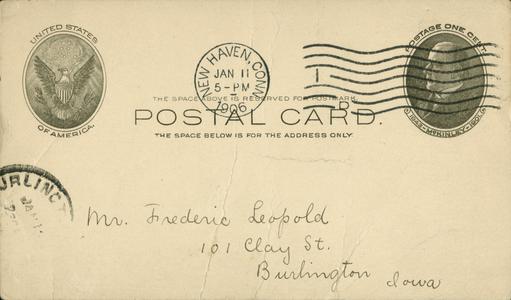 UNITED STATES
OF AMERICA.
NEW HAVEN, CONN.
JAN 11
5-PM
1906
1
D
POSTAGE ONE CENT
1843-McKINLEY-1901.
THE SPACE ABOVE IS RESERVED FOR POSTMARK.
POSTAL CARD.
THE SPACE BELOW IS FOR THE ADDRESS ONLY.
JAN
Mr. Frederic Leopold
101 Clay St.
Burlington Iowa